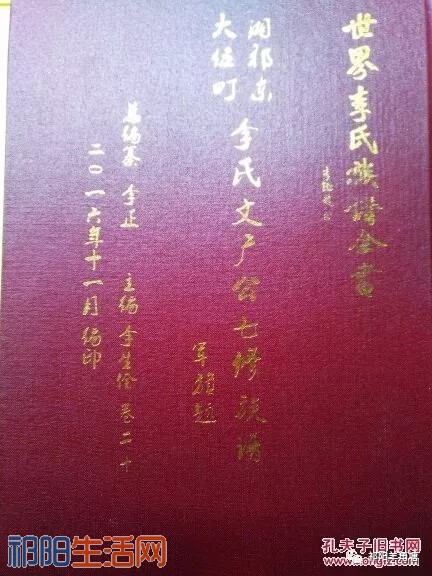 世界李氏族谱全书
湘祁东
大伍町
李氏文户公七修族谱
军旗题
总编纂 李正 主编 李生徐 卷二十
二〇一六年十一月编印
祁阳生活网
孔夫子旧书网